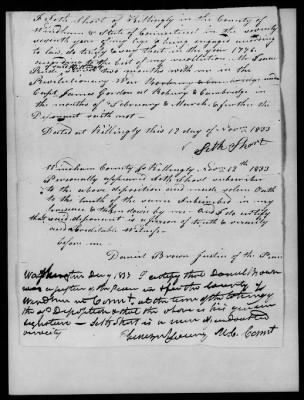 I Seth Short of Killingly in the County of
Windham & State of Connecticut in the seventy
seventh year being
to law, do testify & say that in the year 1776
according to the best of my recollection Mr Isaac
two months with me in the
Revolutionary War Roxbury & Cambridge under
Capt. James Gordon at Roxbury & Cambridge in
the months of February & March, & further the
Deponent saith not —
Dated at Killingly this 12 day of Novr. 1833
Seth Short
Windham County ss Killingly, Novr. 12th 1833
Personally appeared Seth Short subscriber
to the above deposition and made solemn Oath
to the truth of the same Subscribed in my
presence & taken down by me And I do certify
that said deponent is a person of truth & veracity
and Creditable Witness —
before me
Daniel Brown Justice of the Peace
1833 I certify that Daniel Brown
was a justice of the Peace in & for the County of
Windham at Connt. at the time of the taking
the of Deposition & that the above is his genuine
signature — Seth Short is a man of undoubted
veracity
M.C. Connt